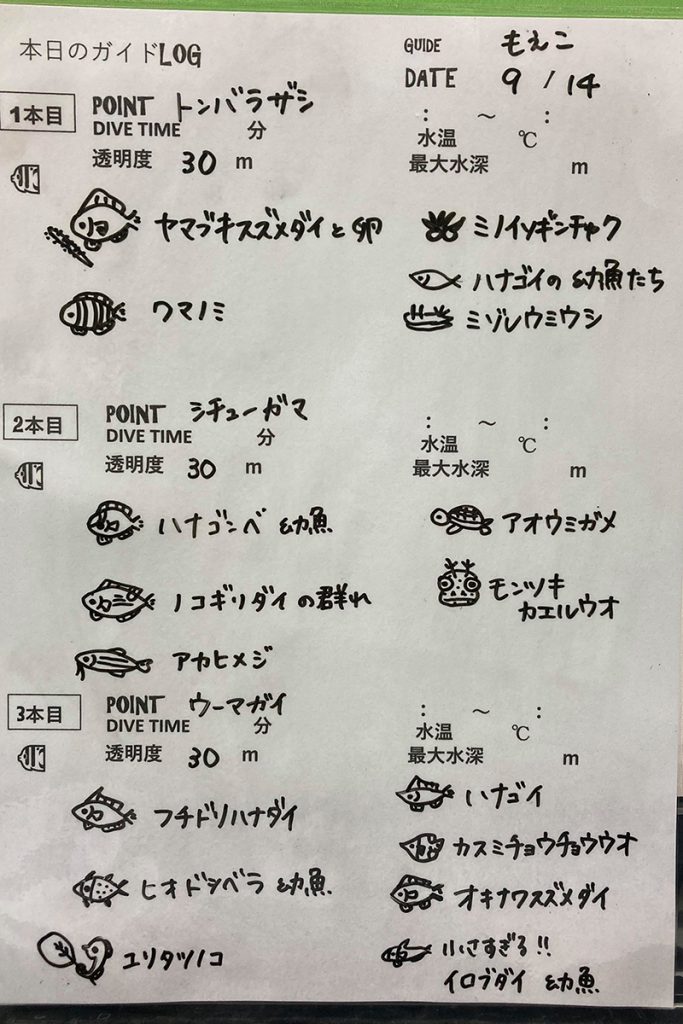 本日のガイドLOG
GUIDE もえこ
DATE 9 / 14
1本目 POINT トンバラザシ
DIVE TIME 分 : ～ :
水温 ℃
透明度 30 m 最大水深 m
ヤマブキスズメダイと卵
クマノミ
ミノイソギンチャク
ハナゴイの幼魚たち
ミゾレウミウシ
2本目 POINT シチューガマ
DIVE TIME 分 : ～ :
水温 ℃
透明度 30 m 最大水深 m
ハナゴンベ 幼魚
ノコギリダイの群れ
アカヒメジ
アオウミガメ
モンツキ
カエルウオ
3本目 POINT ウーマガイ
DIVE TIME 分 : ～ :
水温 ℃
透明度 30 m 最大水深 m
フチドリハナダイ
ヒオドシベラ 幼魚
ユリタツノコ
ハナゴイ
カスミチョウチョウウオ
オキナワスズメダイ
小さすぎる!!
イロブダイ 幼魚